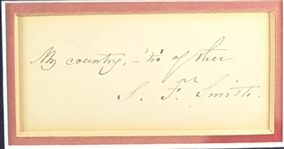 My country, - 'tis of thee
S. F. Smith.